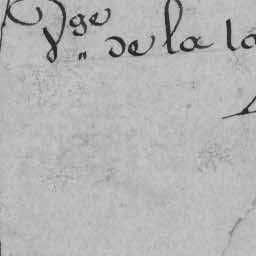 Vge de la la